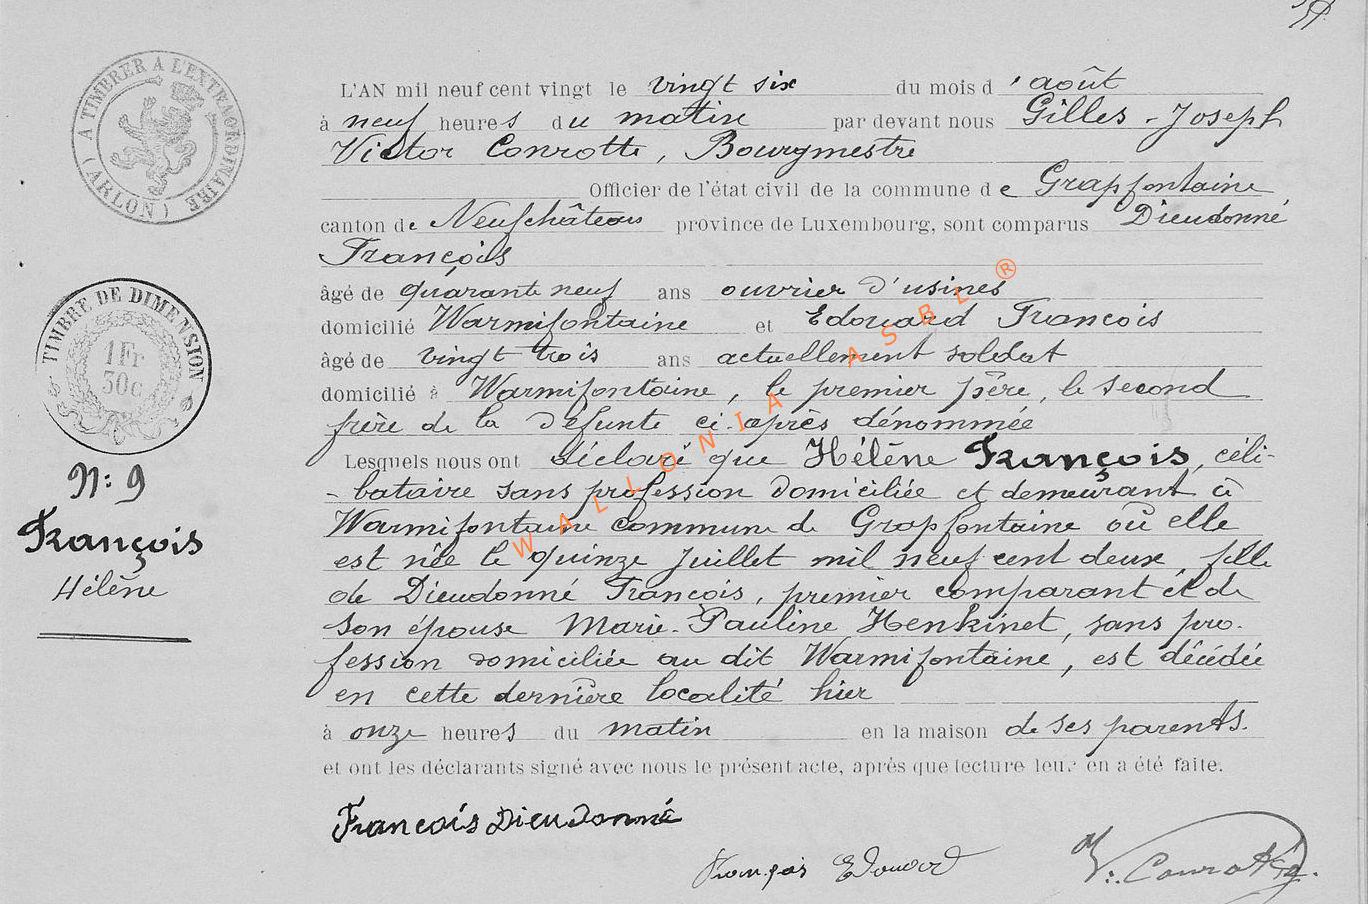 A TIMBRER A L'EXTRAORDINAIRE
(ARLON)
L'AN mil neuf cent vingt le vingt six du mois d'août
à neuf heures du matin par devant nous Gilles-Joseph
Victor Conrotte, Bourgmestre
Officier de l'état civil de la commune de Grapfontaine
canton de Neufchâteau province de Luxembourg, sont comparus Dieudonné
François
âgé de quarante neuf ans ouvrier d'usines
domicilié Warmifontaine et Edouard François
âgé de vingt trois ans actuellement soldat
domicilié à Warmifontaine, le premier père, le second
frère de la défunte ci-après dénommée
Lesquels nous ont déclaré que Hélène François, céli-
-bataire sans profession domiciliée et demeurant à
Warmifontaine commune de Grapfontaine où elle
est née le quinze juillet mil neuf cent deux, fille
de Dieudonné François, premier comparant et de
son épouse Marie-Pauline Henkinet, sans pro-
fession domiciliée au dit Warmifontaine, est décédée
en cette dernière localité hier
à onze heures du matin en la maison de ses parents.
et ont les déclarants signé avec nous le présent acte, après que lecture leur en a été faite.
TIMBRE DE DIMENSION
1Fr
30c
N: 9
François
Hélène
François Dieudonné
François Edouard
V: Conrotte.
WALLONIA ASBL ®